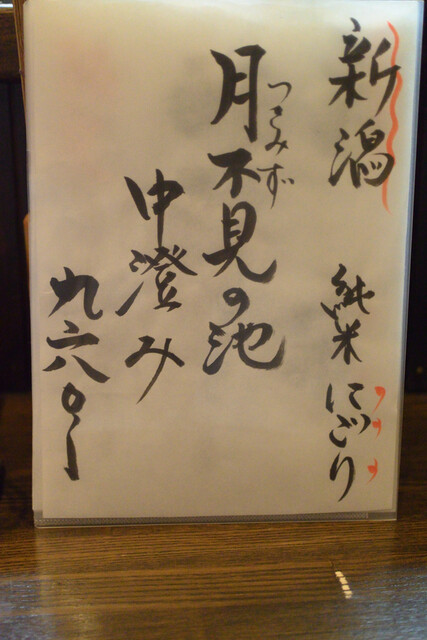 新潟 純米にごり
つきみず
月不見の池
中澄み
九六〇ー